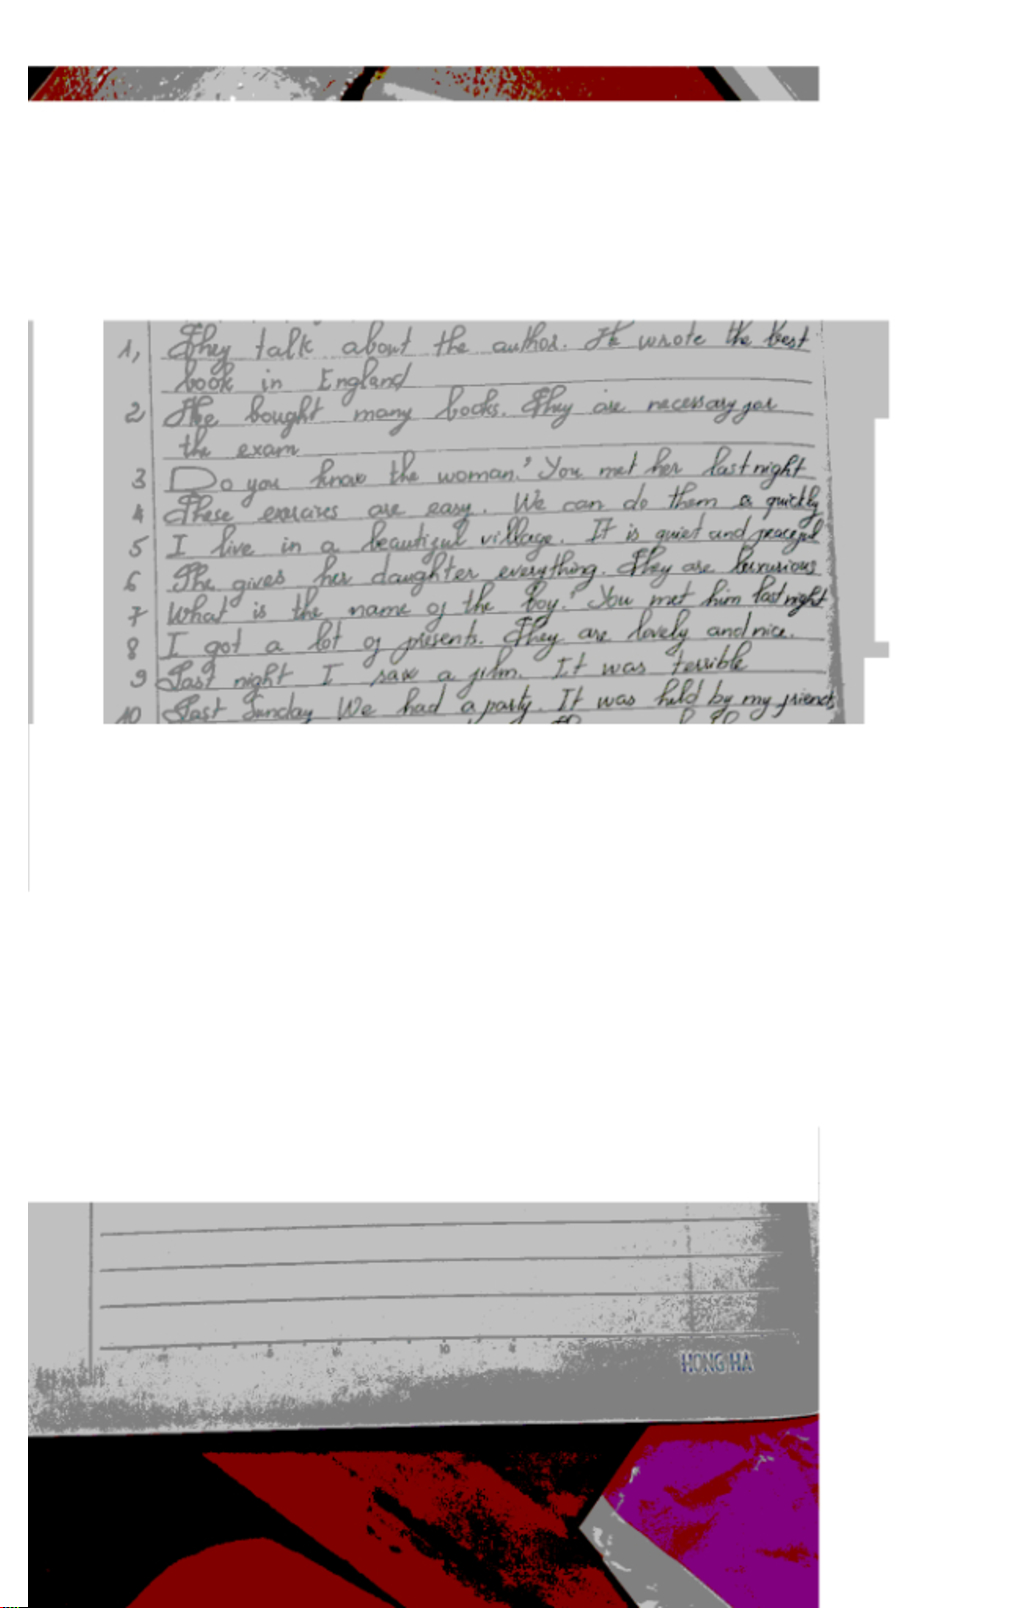 1, They talk about the author. He wrote the best
book in England
2, Hee bought many books. They are necessary for
the exam
3 Do you know the woman? You met her last night
4 These exercixes are easy. We can do them a quickly
5 I live in a beautiful village. It is quiet and peaceful
6 She gives her daughter everything. They are luxurious
7 What is the name of the boy? You met him last night
8 I got a lot of presents. They are lovely and nice.
9 Last night I saw a film. It was terrible
10 Last Sunday We had a party. It was held by my friends
HONG HA